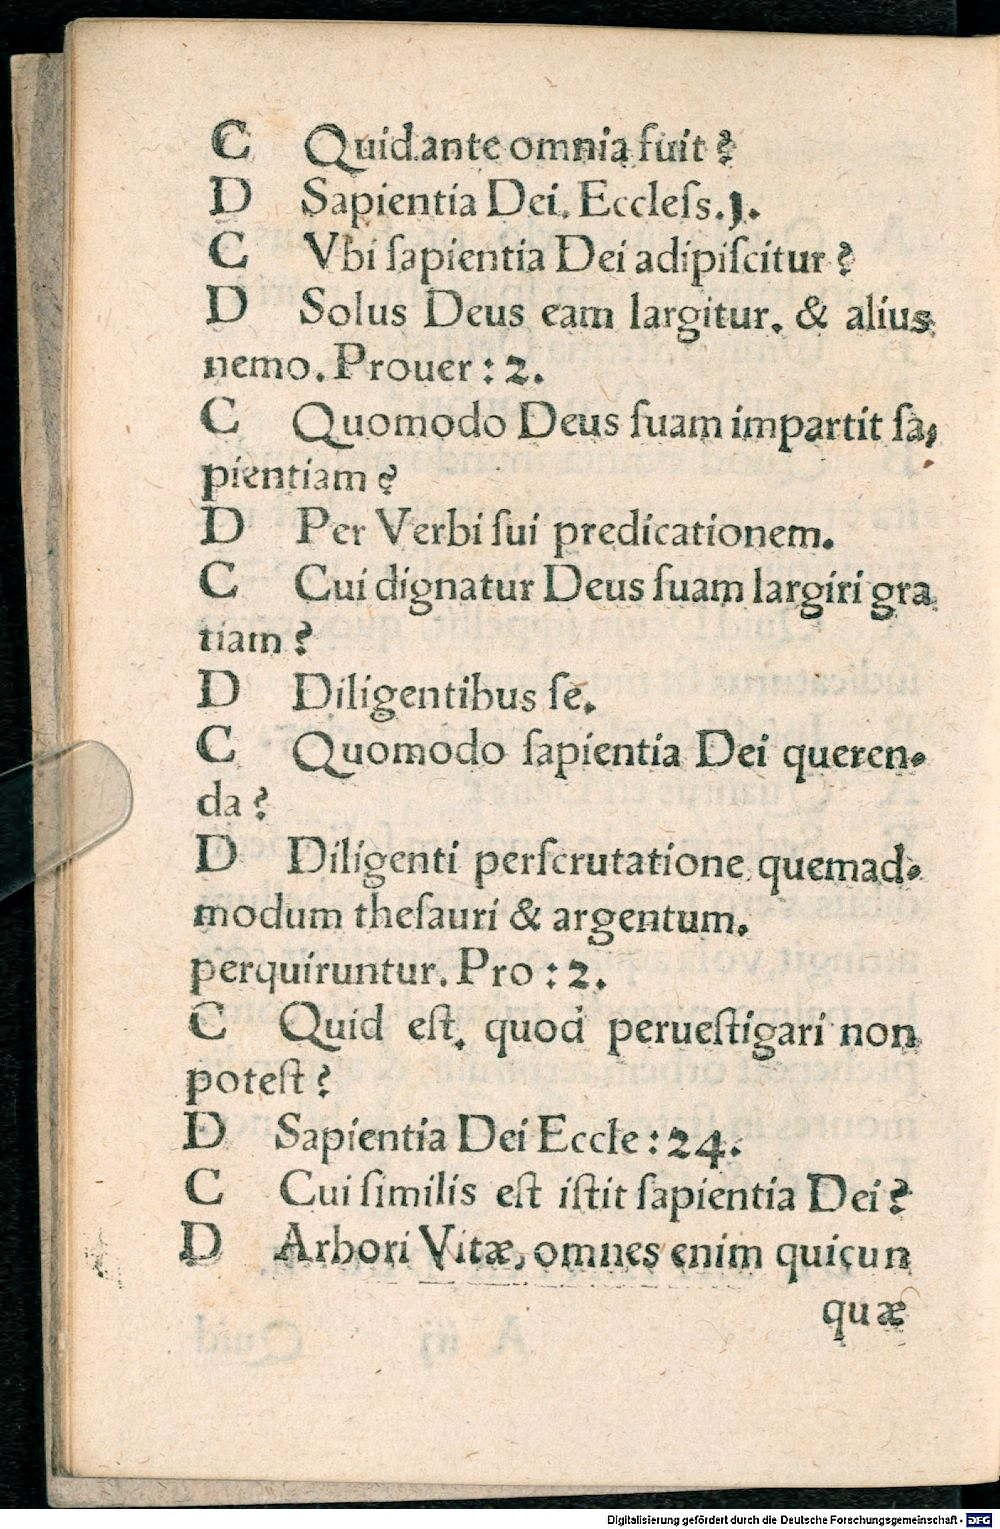 C Quid.ante omnia fuit ?
D Sapientia Dei. Eccleſs.j.
C Vbi ſapientia Dei adipiſcitur ?
D Solus Deus eam largitur. & alius
nemo. Prouer : 2.
C Quomodo Deus ſuam impartit ſa,
pientiam ?
D Per Verbi ſui predicationem.
C Cui dignatur Deus ſuam largiri gra
tiam ?
D Diligentibus ſe.
C Quomodo ſapientia Dei queren-
da ?
D Diligenti perſcrutatione quemad-
modum theſauri & argentum.
perquiruntur. Pro : 2.
C Quid eſt. quod perueſtigari non
poteſt ?
D Sapientia Dei Eccle : 24.
C Cui ſimilis eſt iſtit ſapientia Dei ?
D Arbori Vitæ, omnes enim quicun
quæ
Digitalisierung gefördert durch die Deutsche Forschungsgemeinschaft - DFG